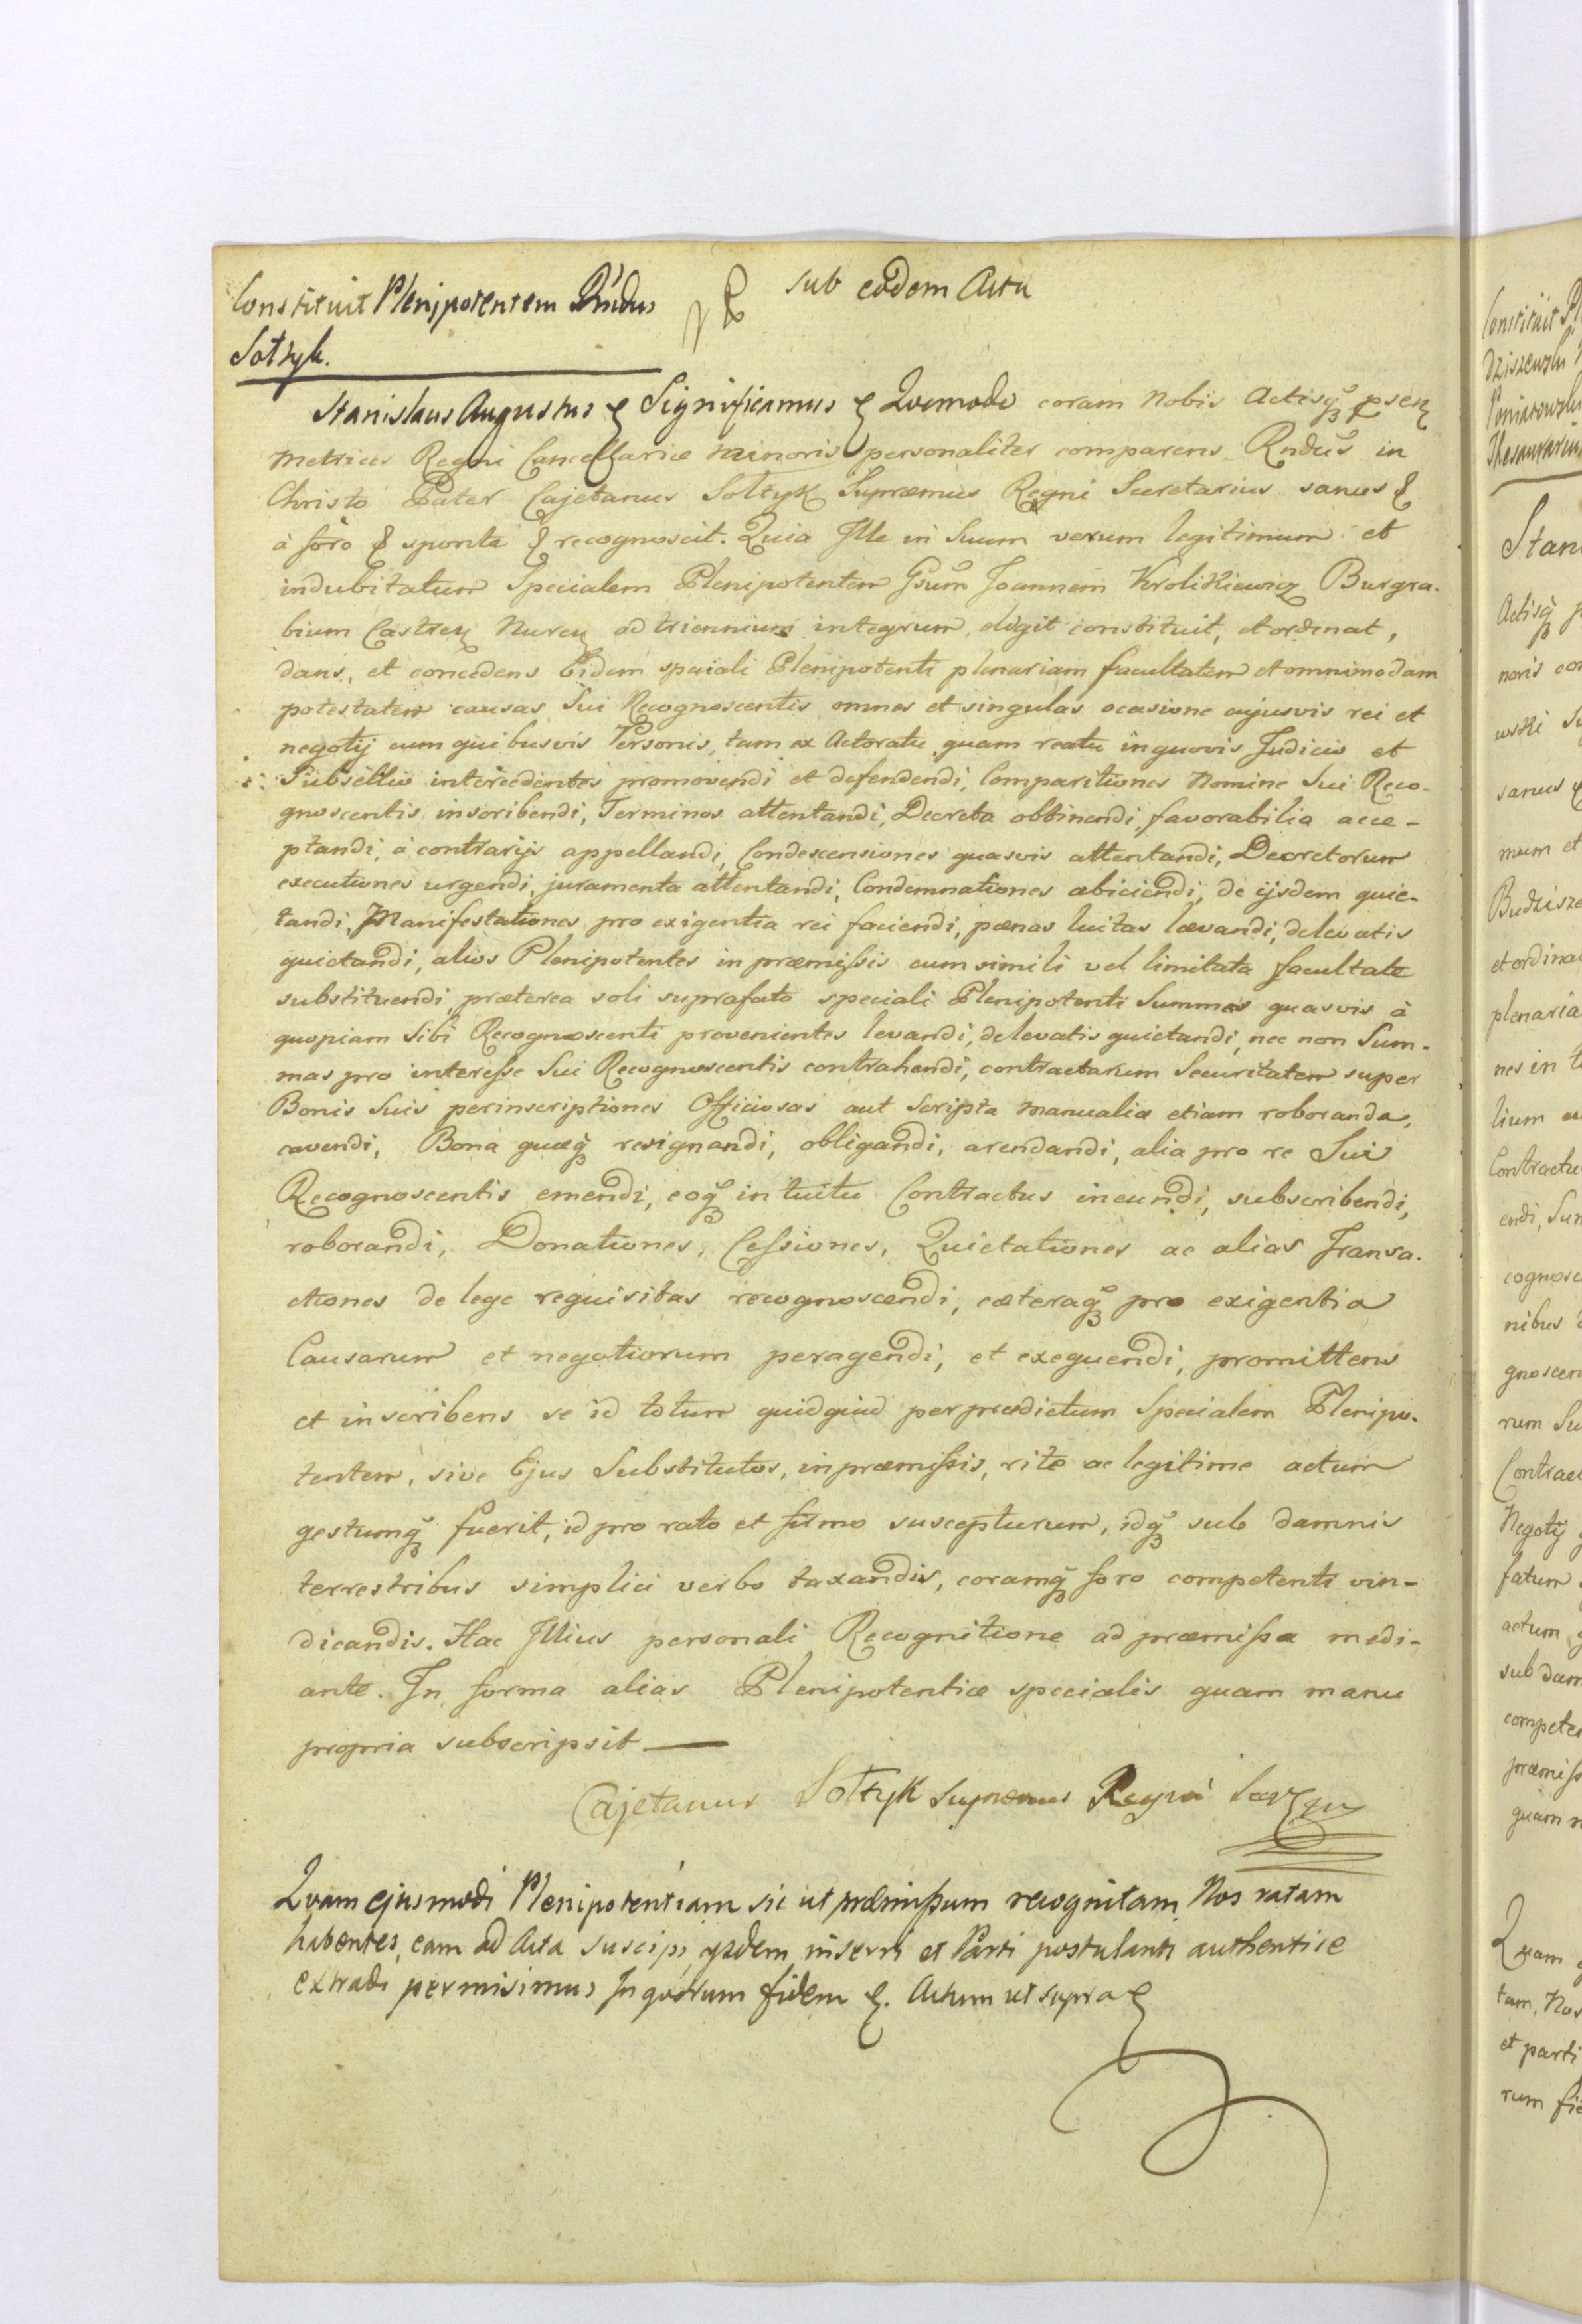 Constituit Plenipotentem Rndus
Sołtyk.
sub eodem Actu
Stanislaus Augustus & Significamus & Quomodo coram Nobis Actisq̃ psen
Metrices Regni Cancellariæ minoris personaliter comparens Rndus in
Christo Pater Cajetanus Sołtyk Supræmus Regni Secretarius sanus &
à foro & sponte & recognoscit. Quia Ille in Suum verum legitimum et
indubitatum Specialem Plenipotentem Gsum Joannem Krolikiewicz Burgra-
bium Castren Nuren ad triennium integrum, eligit constituit, et ordinat,
dans, et concedens Eidem speciali Plenipotenti plenariam facultatem et omnimodam
potestatem causas Sui Recognoscentis omnes et singulas ocasione cujusvis rei et
negotij cum quibusvis Personis, tam ex Actoratu quam reatu in quovis Judicio et
Subsellio intercedentes promovendi et defendendi, Comparitiones Nomine Sui Reco-
gnoscentis inscribendi, Terminos attentandi, Decreta obtinendi, favorabilia acce-
ptandi, à contrarijs appellandi, Condescensiones quasvis attentandi, Decretorum
executiones urgendi, juramenta attentandi, Condemnationes abiciendi, de ijsdem quie-
tandi, Manifestationes pro exigentia rei faciendi, pænas luitas lævandi, de levatis
quietandi, alios Plenipotentes in præmissis cum simili vel limitata facultate
substituendi, præterea soli suprafato speciali Plenipotenti Summas quasvis à
quopiam Sibi Recognoscenti provenientes levandi, de levatis quietandi, nec non Sum-
mas pro interesse Sui Recognoscentis contrahendi, contractarum Securitatem super
Bonis Suis per inscriptiones Officiosas aut Scripta manualia etiam roboranda,
cavendi, Bona quæq̃ resignandi, obligandi, arendandi, alia pro re Sui
Recognoscentis emendi, eoq̃ intuitu Contractus ineundi, subscribendi,
roborandi, Donationes, Cessiones, Quietationes ac alias Transa-
ctiones de lege requisitas recognoscendi, cæteraq̃ pro exigentia
Causarum et negotiorum peragendi, et exequendi, promittens
et inscribens se id totum quidquid per prædictum Specialem Plenipo-
tentem, sive Ejus Substitutos, in præmissis, rite ac legitime actum
gestumq̃ fuerit, id pro rato et firmo suscepturum, idq̃ sub damnis
terrestribus simplici verbo taxandis, coramq̃ foro competenti vin-
dicandis. Hac Illius personali Recognitione ad præmissa medi-
ante. In forma alias Plenipotentiæ specialis quam manu
propria subscripsit —
Cajetanus Sołtyk Supremus Regni
Quam ejusmodi Plenipotentiam sic ut præmissum recognitam Nos ratam
habentes, eam ad Acta suscipi, ijsdem inserri et Parti postulanti authentice
extradi permisimus In quorum fidem &. Actum ut supra &